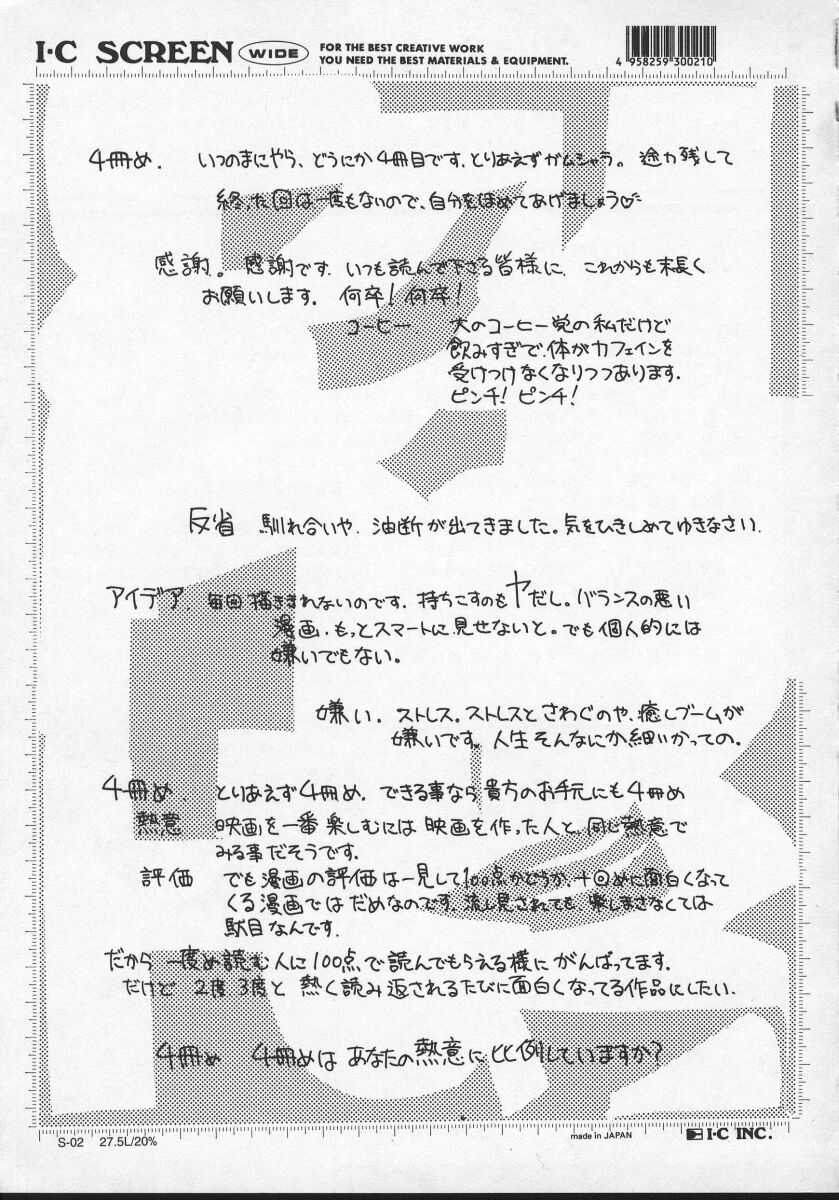 I·C SCREEN WIDE FOR THE BEST CREATIVE WORK
YOU NEED THE BEST MATERIALS & EQUIPMENT.
4 958259 300210
4冊め. いつのまにやら、どうにか4冊目です。とりあえずがむしゃら。途力残して
終った回は一度もないので、自分をほめてあげましょう♡
感謝。感謝です。いつも読んで下さる皆様に、これからも末長く
お願いします。何卒!何卒!
コーヒー 大のコーヒー党の私だけど
飲みすぎで、体がカフェインを
受けつけなくなりつつあります。
ピンチ!ピンチ!
反省 馴れ合いや、油断が出てきました。気をひきしめてゆきなさい.
アイデア. 毎回描ききれないのです。持ちこすのもヤだし。バランスの悪い
漫画.もっとスマートに見せないと。でも個人的には
嫌いでもない。
嫌い. ストレス。ストレスとさわぐのや、癒しブームが
嫌いです。人生そんなにか細いかっての。
4冊め. とりあえず4冊め. できる事なら貴方のお手元にも4冊め
熱意 映画を一番楽しむには映画を作った人と、同じ熱意で
みる事だそうです.
評価 でも漫画の評価は一見して100点かどうか、十回めに面白くなって
くる漫画ではだめなのです。流し見されても、楽しまさなくては
駄目なんです.
だから一度め読む人に100点で読んでもらえる様にがんばってます.
だけど 2度 3度と 熱く読み返されるたびに面白くなってる作品にしたい.
4冊め 4冊めはあなたの熱意に比例していますか?
S-02 27.5L/20%
made in JAPAN
I·C INC.